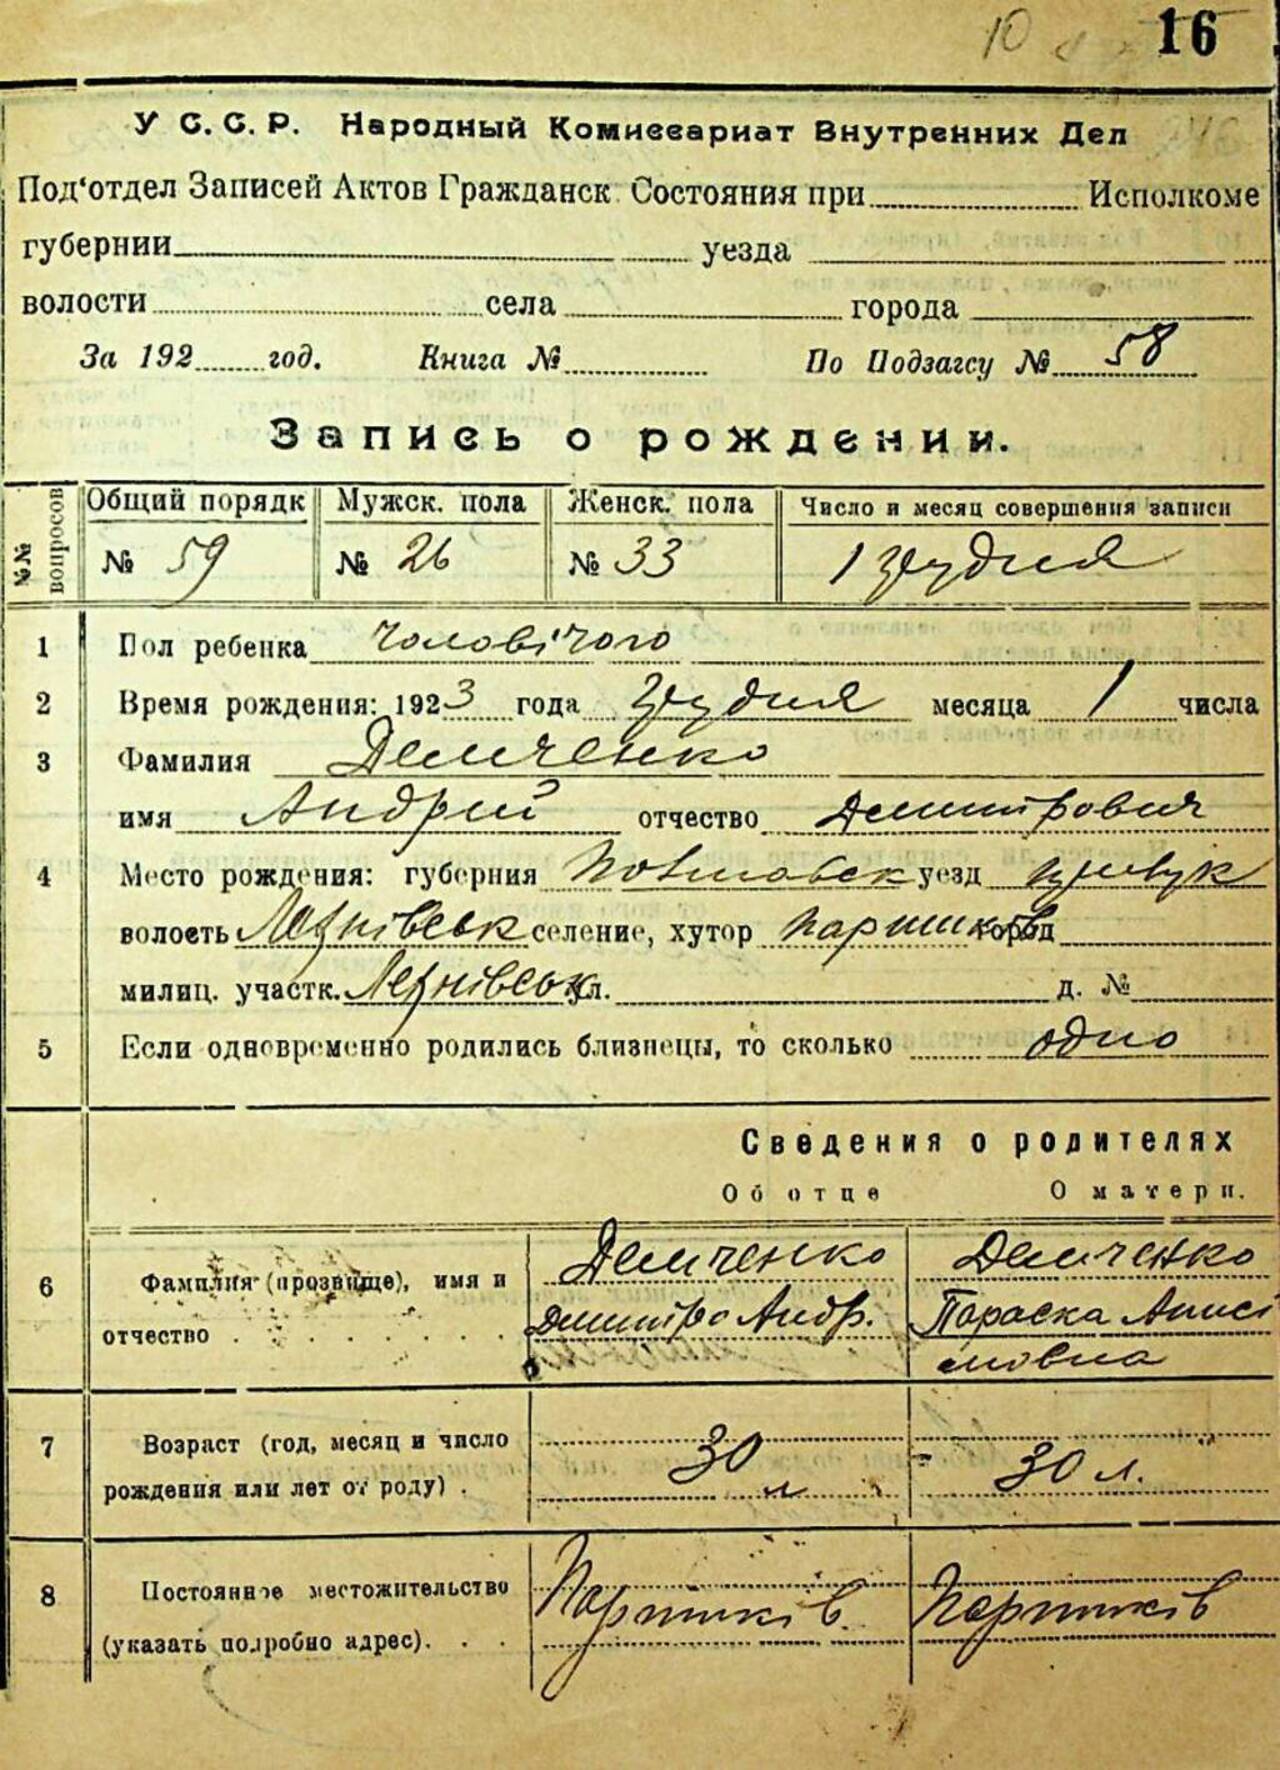 10 16
У С. С. Р. Народный Комиссариат Внутренних Дел
Под‘отдел Записей Актов Гражданск. Состояния при Исполкоме
губернии уезда
волости села города
За 192 год. Книга № По Подзагсу № 58
Запись о рождении.
№№ вопросов Общий порядк Мужск. пола Женск. пола Число и месяц совершения записи
№ 59 № 26 № 33 1 грудня
1 Пол ребенка чоловічого
2 Время рождения: 1923 года грудня месяца 1 числа
3 Фамилия Демченко
имя Андрій отчество Дмитрович
4 Место рождения: губерния Полтавськ уезд прилук
волость Лезнівськ селение, хутор Паршиків город
милиц. участк. Лезнівськ ул. д. №
5 Если одновременно родились близнецы, то сколько одно
Сведения о родителях
Об отце О матери.
6 Фамилия (прозвище), имя и Демченко Демченко
отчество Дмитро Андр. Параска Анисі
мовна
7 Возраст (год, месяц и число 30 30 л.
рождения или лет от роду) . л
8 Постоянное местожительство Паршиків Паршиків
(указать подробно адрес). . .